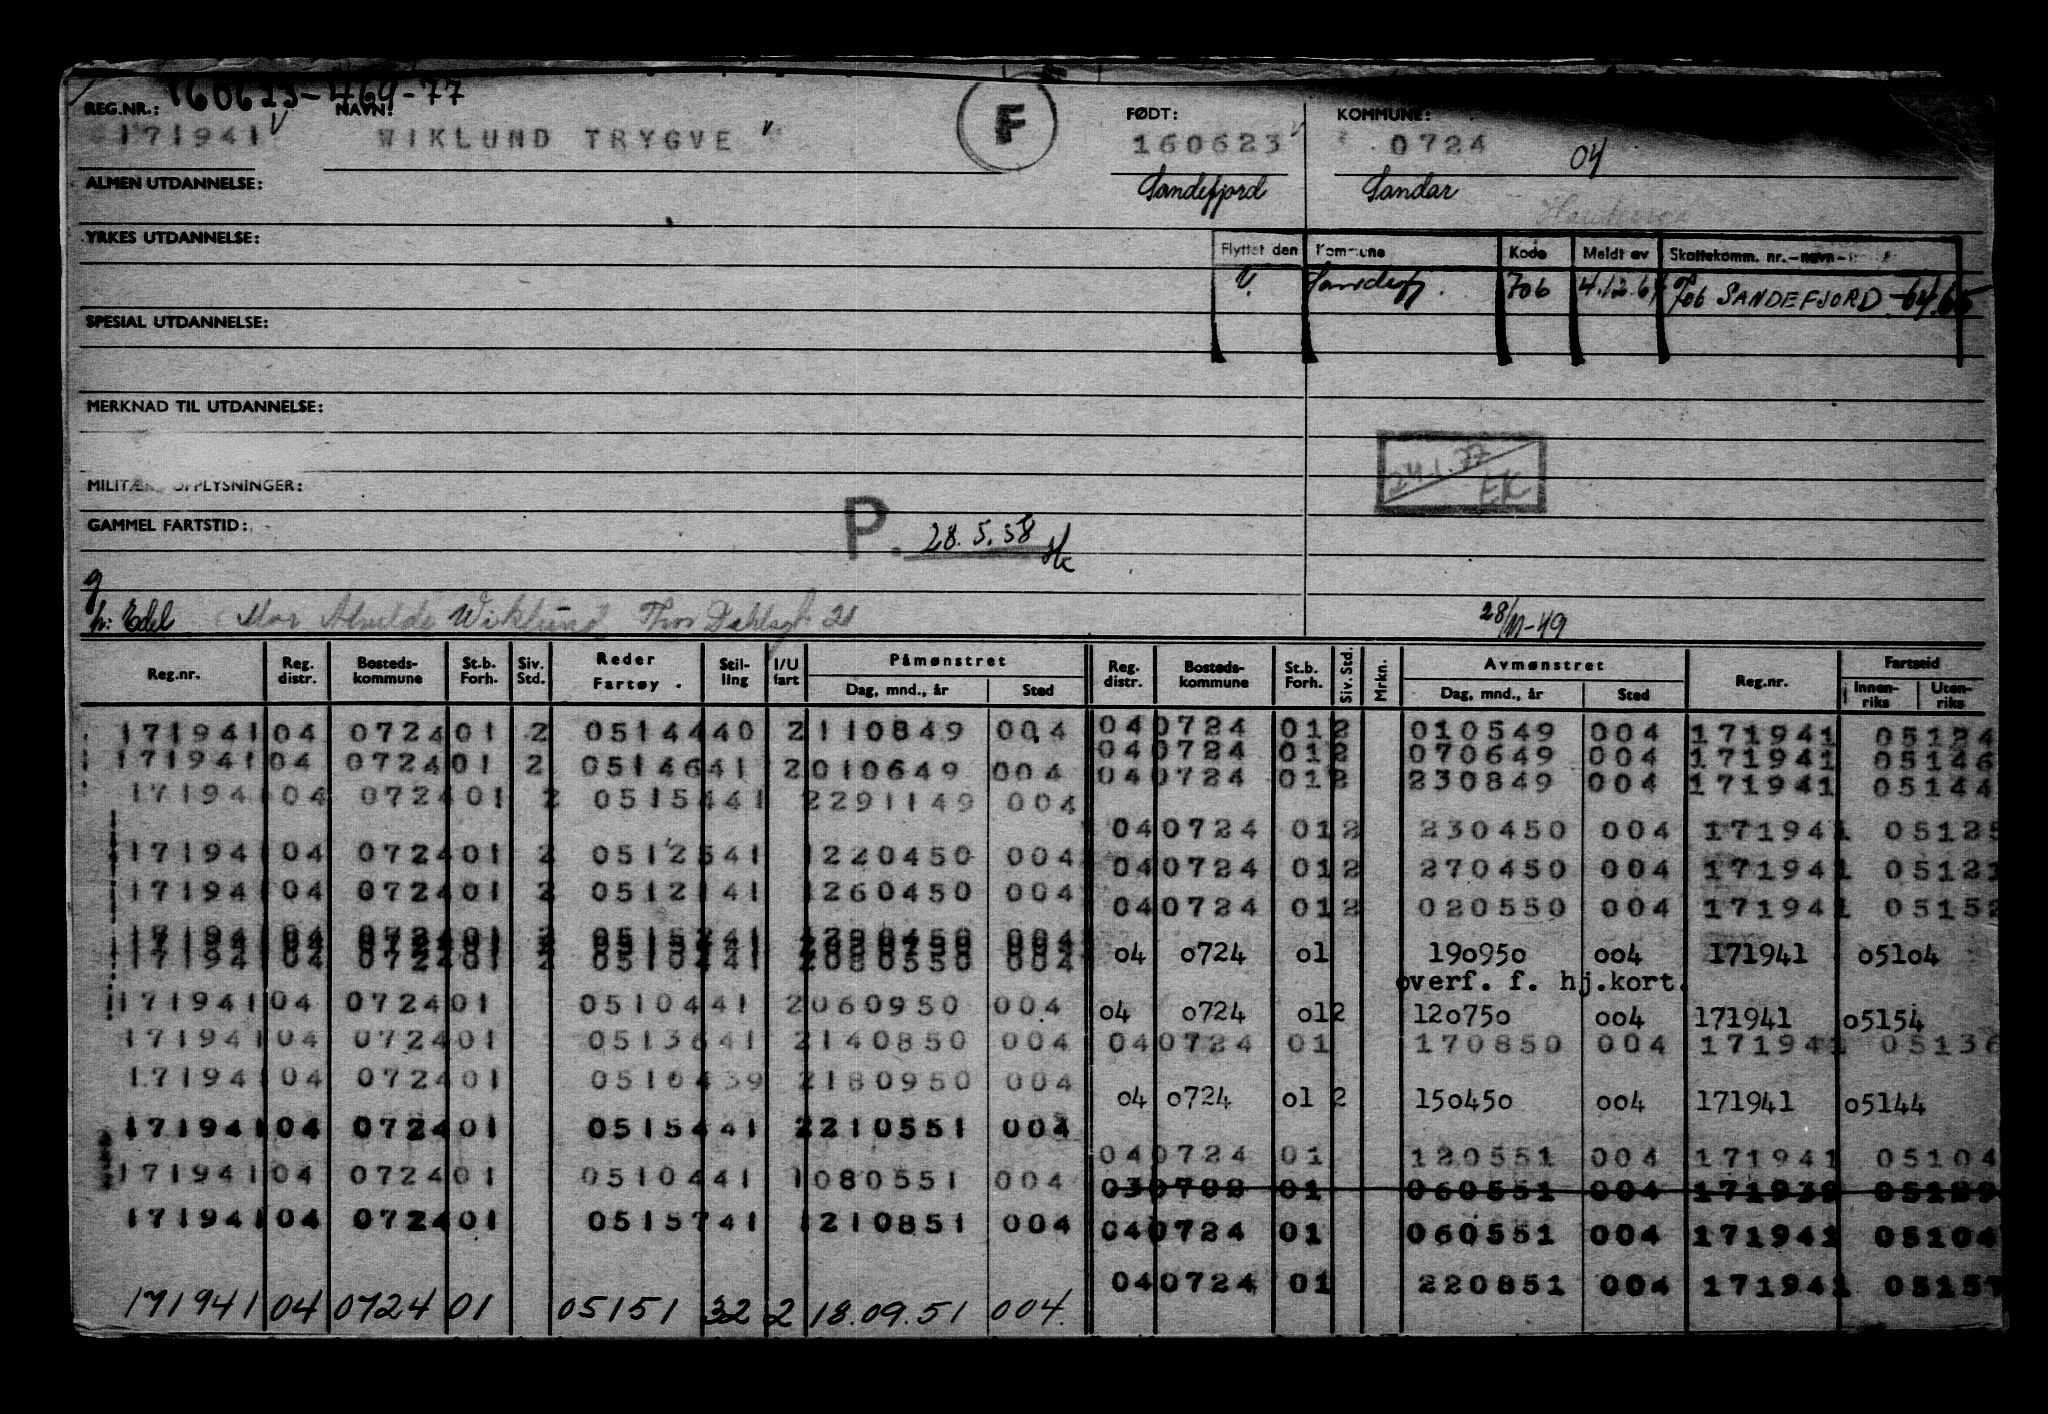 160623-469-77
REG.NR.: NAVN: FØDT: KOMMUNE:
171941 WIKLUND TRYGVE F 160623 0724 04
ALMEN UTDANNELSE: Sandefjord Sandar
YRKES UTDANNELSE:
Flyttet den Kommune Kode Meldt av Skattekomm. nr.-navn-
V. Sandefj. 706 4.12.64 706 SANDEFJORD -64.65
SPESIAL UTDANNELSE:
MERKNAD TIL UTDANNELSE:
24.1.77 EK
MILITÆRE OPPLYSNINGER:
GAMMEL FARTSTID:
P. 28.5.58 Hk
g
h: Edel Mor Alvilde Wiklund Thor Dahlsgt. 21 28/11-49
Reg.nr. Reg. distr. Bosteds-kommune St.b. Forh. Siv. Std. Reder Fartøy. Stil-ling I/U fart Påmønstret Dag, mnd., år Sted Reg. distr. Bosteds-kommune St.b. Forh. Siv. Std. Mrkn. Avmønstret Dag, mnd., år Sted Reg.nr. Fartstid Innen-riks Uten-riks
171941 04 0724 01 2 05144 40 2 110849 004 04 0724 01 2 010549 004 171941 05124
171941 04 0724 01 2 05146 41 2 010649 004 04 0724 01 2 070649 004 171941 05146
171941 04 0724 01 2 05154 41 2 291149 004 04 0724 01 2 230849 004 171941 05144
04 0724 01 2 230450 004 171941 05125
171941 04 0724 01 2 05125 41 1 220450 004 04 0724 01 2 270450 004 171941 05121
171941 04 0724 01 2 05121 41 1 260450 004 04 0724 01 2 020550 004 171941 05152
171941 04 0724 01 2 004
171941 04 0724 01 2 05104 41 2 080550 004 04 0724 01 190950 004 171941 05104
overf. f. hj.kort.
171941 04 0724 01 05104 41 2 060950 004 04 0724 01 2 120750 004 171941 05154
171941 04 0724 01 05136 41 2 140850 004 04 0724 01 170850 004 171941 05136
171941 04 0724 01 05104 39 2 180950 004 04 0724 01 2 150450 004 171941 05144
171941 04 0724 01 05154 41 2 210551 004 04 0724 01 120551 004 171941 05104
171941 04 0724 01 05104 41 1 080551 004 03 0702 01 060551 004 171939 05199
171941 04 0724 01 05157 41 1 210851 004 04 0724 01 060551 004 171941 05104
04 0724 01 220851 004 171941 05157
171941 04 0724 01 05151 32 2 18.09.51 004.